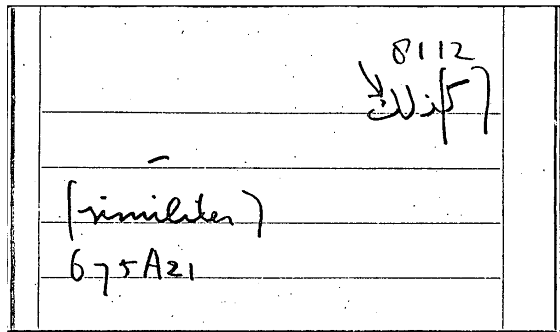 8112
(ك)ذلك
–
(similiter)
675A21